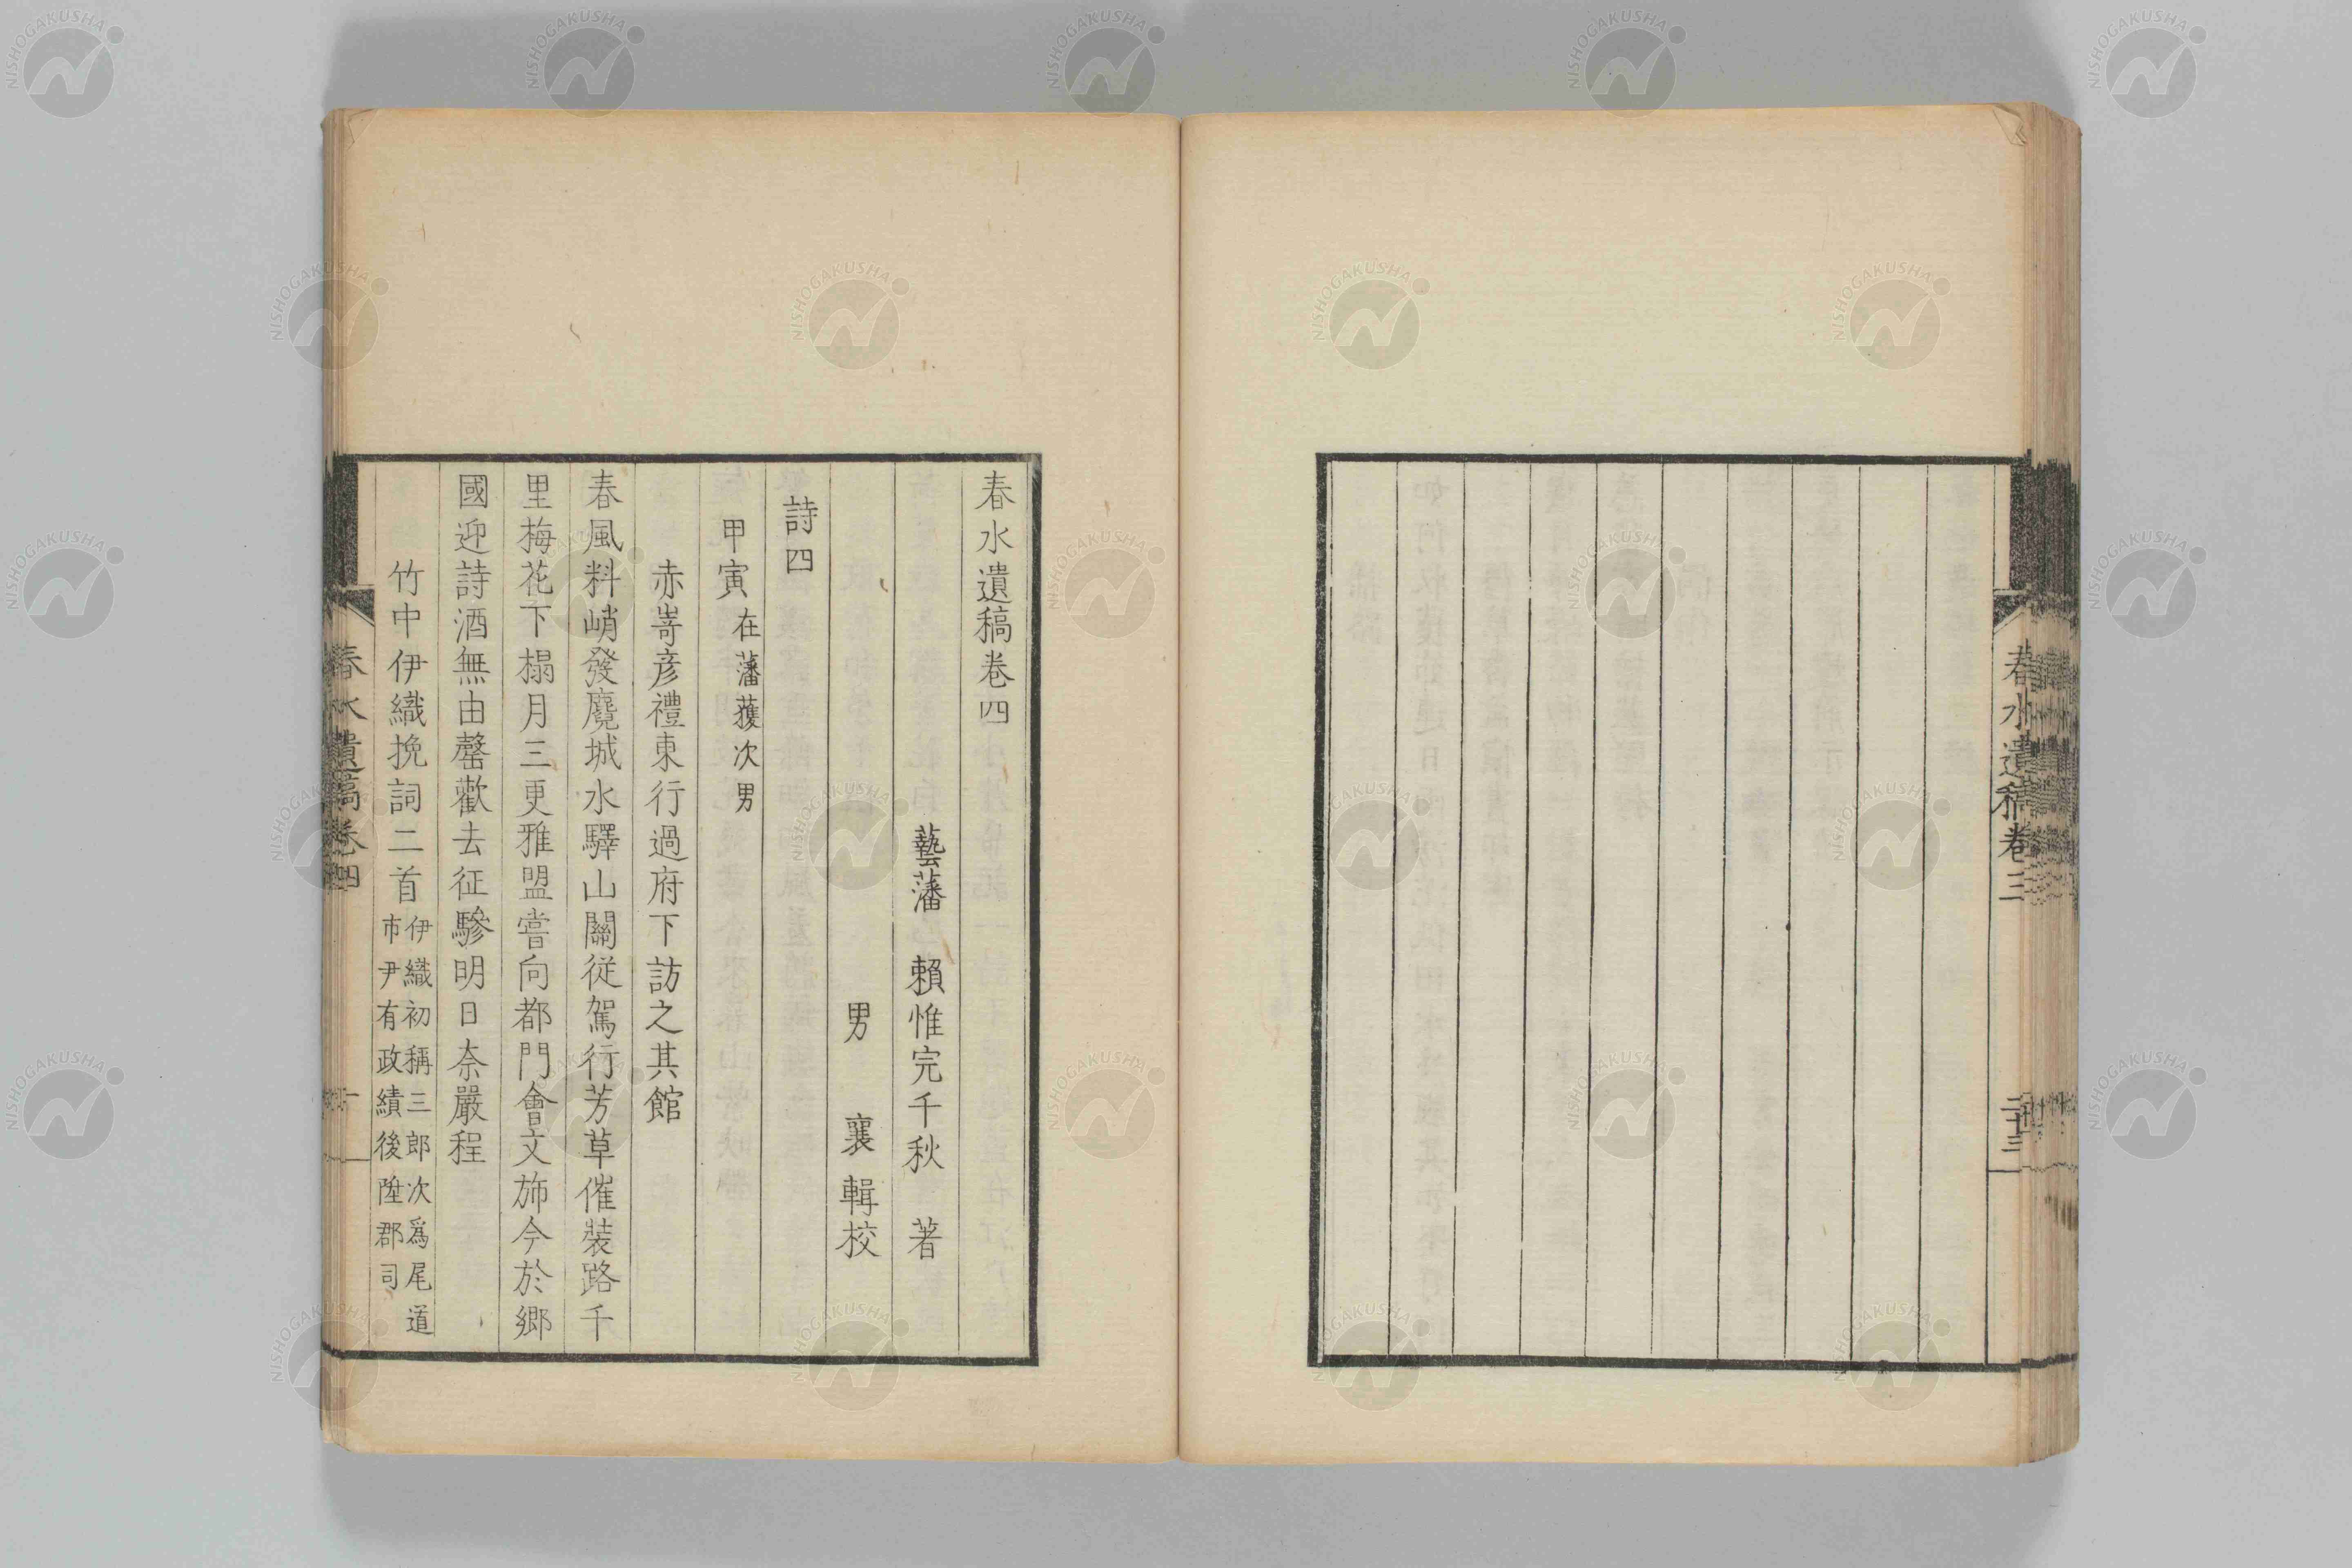 春水遺稿卷三
二十三
春水遺稿卷四
藝藩 賴惟完千秋 著
男 襄 輯校
詩四
甲寅 在藩獲次男
赤嵜彦禮東行過府下訪之其館
春風料峭發麑城水驛山關從駕行芳草催裝路千
里梅花下榻月三更雅盟嘗向都門會文斾今於郷
國迎詩酒無由罄歡去征驂明日奈嚴程
竹中伊織挽詞二首 伊織初稱三郎次爲尾道
市尹有政績後陞郡司
春水遺稿卷四
一
NISHOGAKUSHA